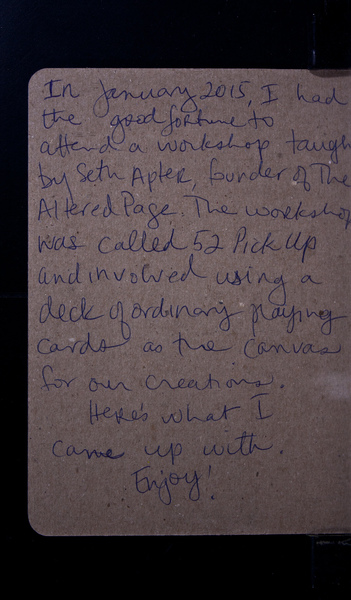 In January 2015, I had
the good fortune to
attend a workshop taugh
by Seth Apter, founder of The
Altered Page. The workshop
was called 52 Pick Up
and involved using a
deck of ordinary playing
cards as the canvas
for our creations.
Here's what I
came up with.
Enjoy!